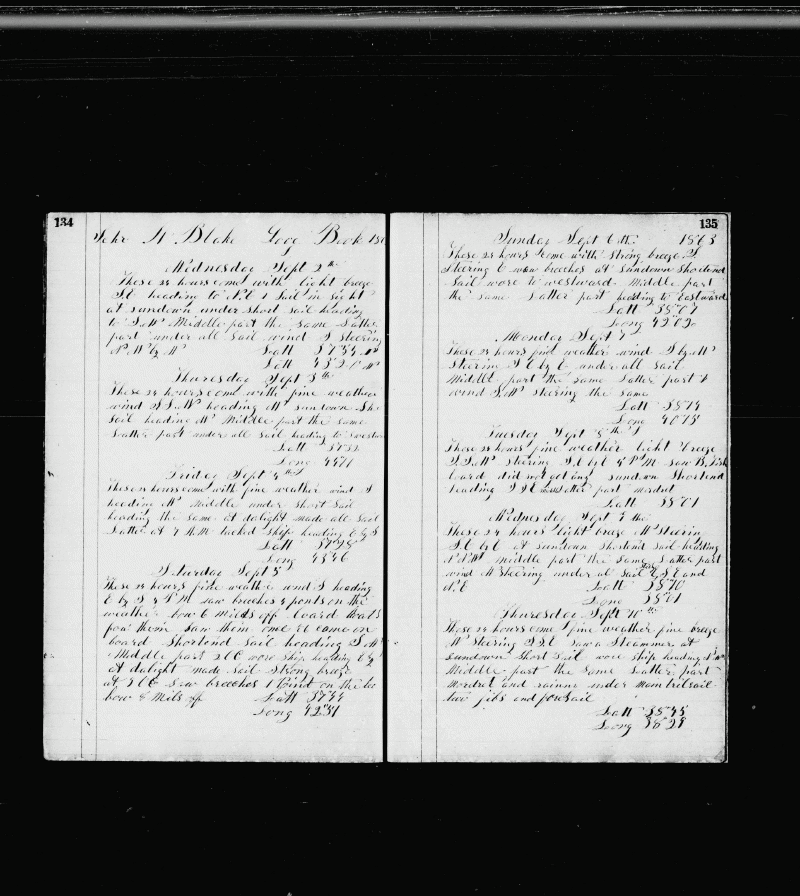 134
Schr A Blake Logg Book 186
Wednesday Sept 2th
These 24 hours comes with light breeze
S.E. heading to N.E 1 Sail in sight
at sundown under short sail heading
to S.W. Middle part the same Latter
part under all sail wind S Steering
N.W by W Latt 37 34
Thursday Sept 3th
These 24 hours come with fine weather
wind S.S.W heading W sundown Sho
Sail heading W Middle part the same
Latter part under all sail heading to
Latt
Long
Friday Sept 4th
These 24 hours come with fine weather wind S
heading W Middle under short Sail
heading the same at dalight made all Sail
Latter at 7 A.M. tacked ship heading E by S
Latt
Long 43 46
Saturday Sept 5
These 24 hours fine weather wind S heading
E by S 4 P.M saw breeches 4 points on the
weather bow 6 Miles off. loard boats
for them saw them one &c came on
board Shortend Sail heading S.W
Middle part wore ship heading E by
At dalight made sail strong breeze
at saw breeches 1 Point on the lee
bow 8 Mils off Latt 37 34
Long 42 31
135
Sunday Sept 6th. 1863
These 24 hours come with Strong breeze S.
Steering E saw breeches at Sundown Shortend
Sail wore to westward Middle part
the same Latter part heading to Eastward
Latt 38 07
Long 42 02
Monday Sept 7
These 24 hours find weather wind S by W
Steerin S E by E under all sail
Middle part the same Latter part
wind S.W steering the same
Latt
Long 40 75
Tuesday Sept 8th
These 24 hours fine weather light breeze
S.S.W steering S.E by E 4 P M saw B. Fish
loard did not get any sundown Shortend
heading S S E Latter part
Latt 38 01
Wednesday Sept 9 the
These 24 hours light breze W Steerin
S.E by E at sundown shortend sail heading
middle part the same Latter part
wind W Steering under al sail E S E and
N.E Latt
Long
Thuresday Sept 10 the
These 24 hours come fine weather fine breeze
W Steering S.S.E saw a Steammer at
sundown Short Sail wore ship heading
Middle part the same Latter part
and rainn under Main trilsail
two jibs and foursail
Latt 38 45
Long 38 29